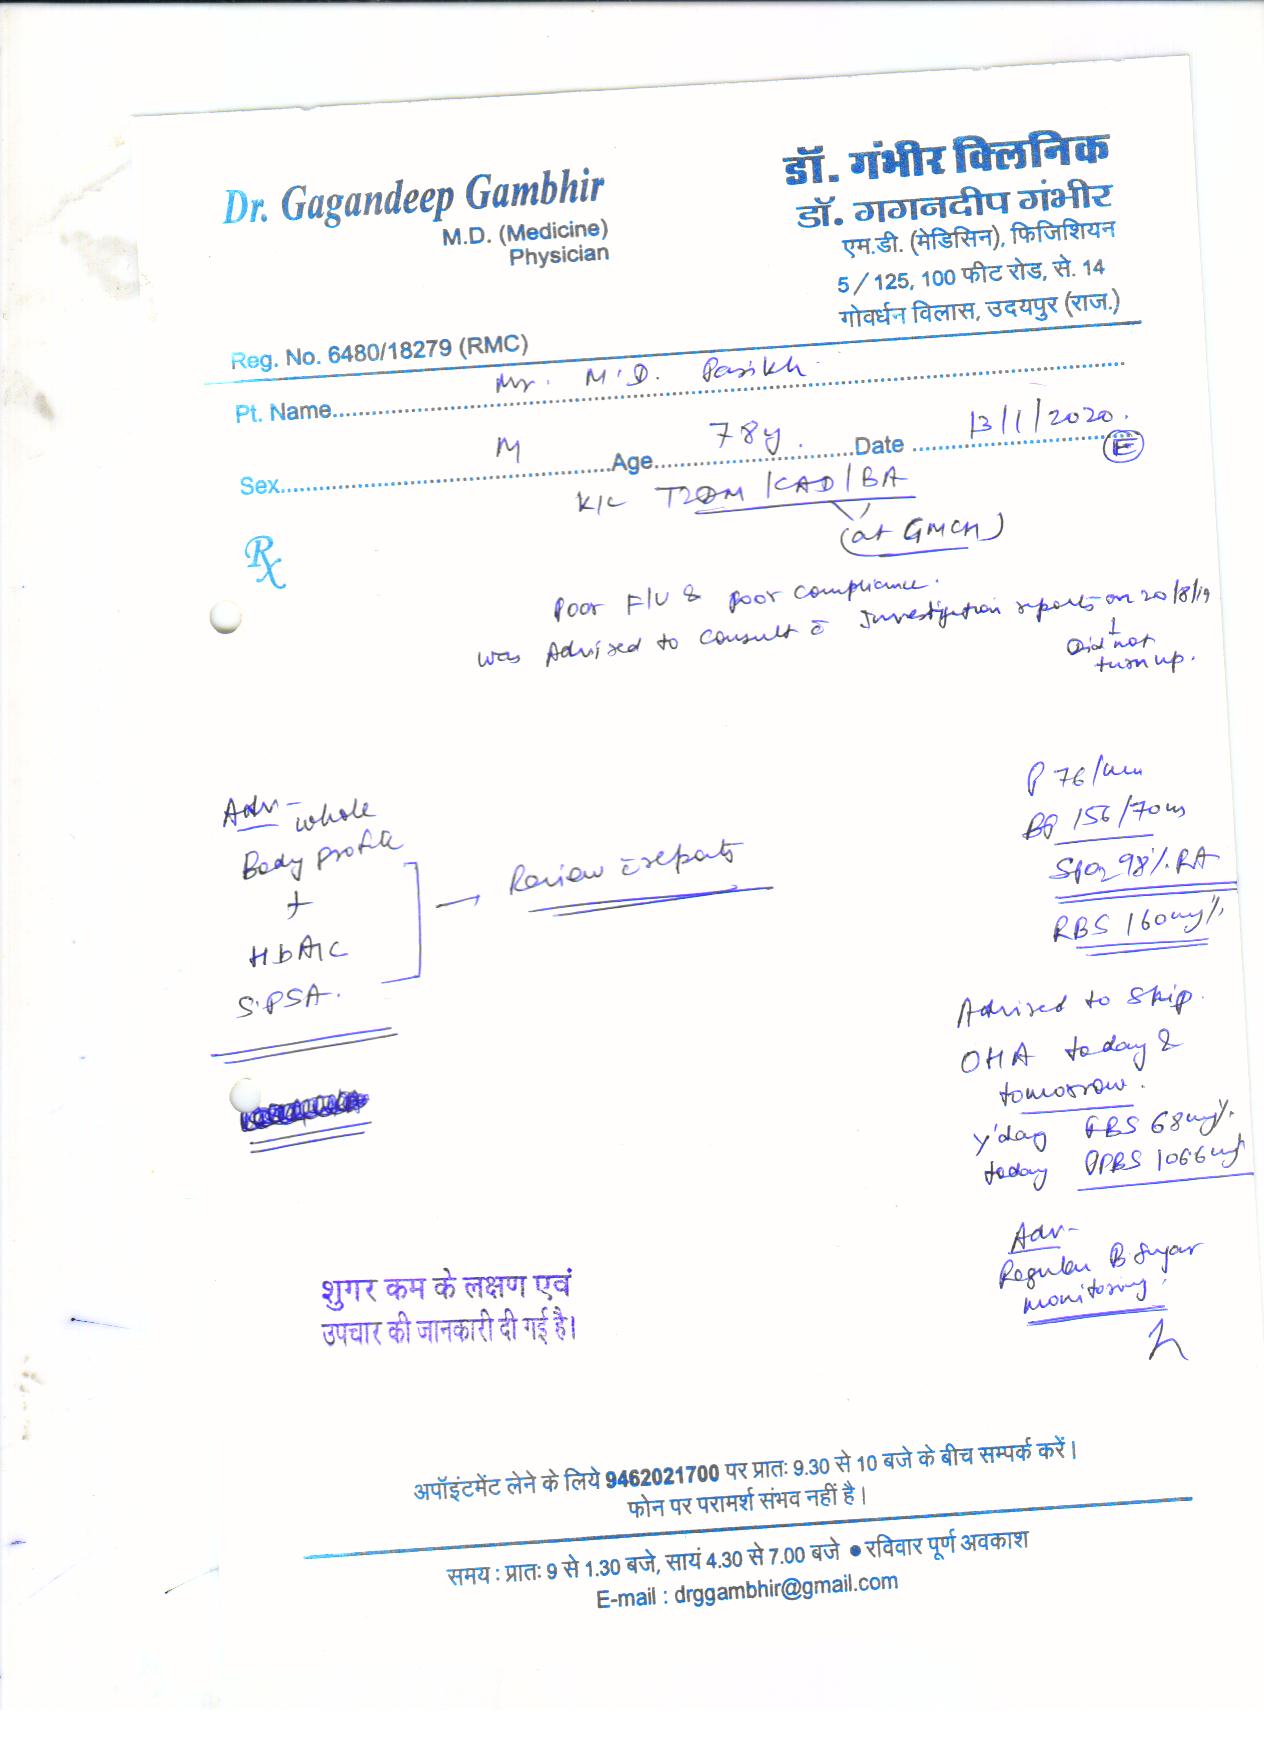 Dr. Gagandeep Gambhir
M.D. (Medicine)
Physician
डॉ. गंभीर क्लिनिक
डॉ. गगनदीप गंभीर
एम.डी. (मेडिसिन), फिजिशियन
5 / 125, 100 फीट रोड, से. 14
गोवर्धन विलास, उदयपुर (राज.)
Reg. No. 6480/18279 (RMC)
Pt. Name Mr. M.D. Parikh
Sex M Age 78y. Date 13/1/2020.
E
K/C T2DM /CAD/BA
(at GMCH)
Rx
Poor F/U & poor compliance.
was Advised to consult c̄ Investigation reports on 20/8/19
Did not
turn up.
Adv -
whole
Body profile
+
HbA1c
S.PSA.
Review c̄ reports
P 76/min
BP 156/70
SpO2 98%. RA
RBS 160mg%
Advised to skip
OHA today &
tomorrow.
y'day FBS 68mg%
today PPBS
Adv -
Regular B. Sugar
monitoring.
शुगर कम के लक्षण एवं
उपचार की जानकारी दी गई है।
अपॉइंटमेंट लेने के लिये 9462021700 पर प्रातः 9.30 से 10 बजे के बीच सम्पर्क करें।
फोन पर परामर्श संभव नहीं है।
समय : प्रातः 9 से 1.30 बजे, सायं 4.30 से 7.00 बजे ● रविवार पूर्ण अवकाश
E-mail : drggambhir@gmail.com